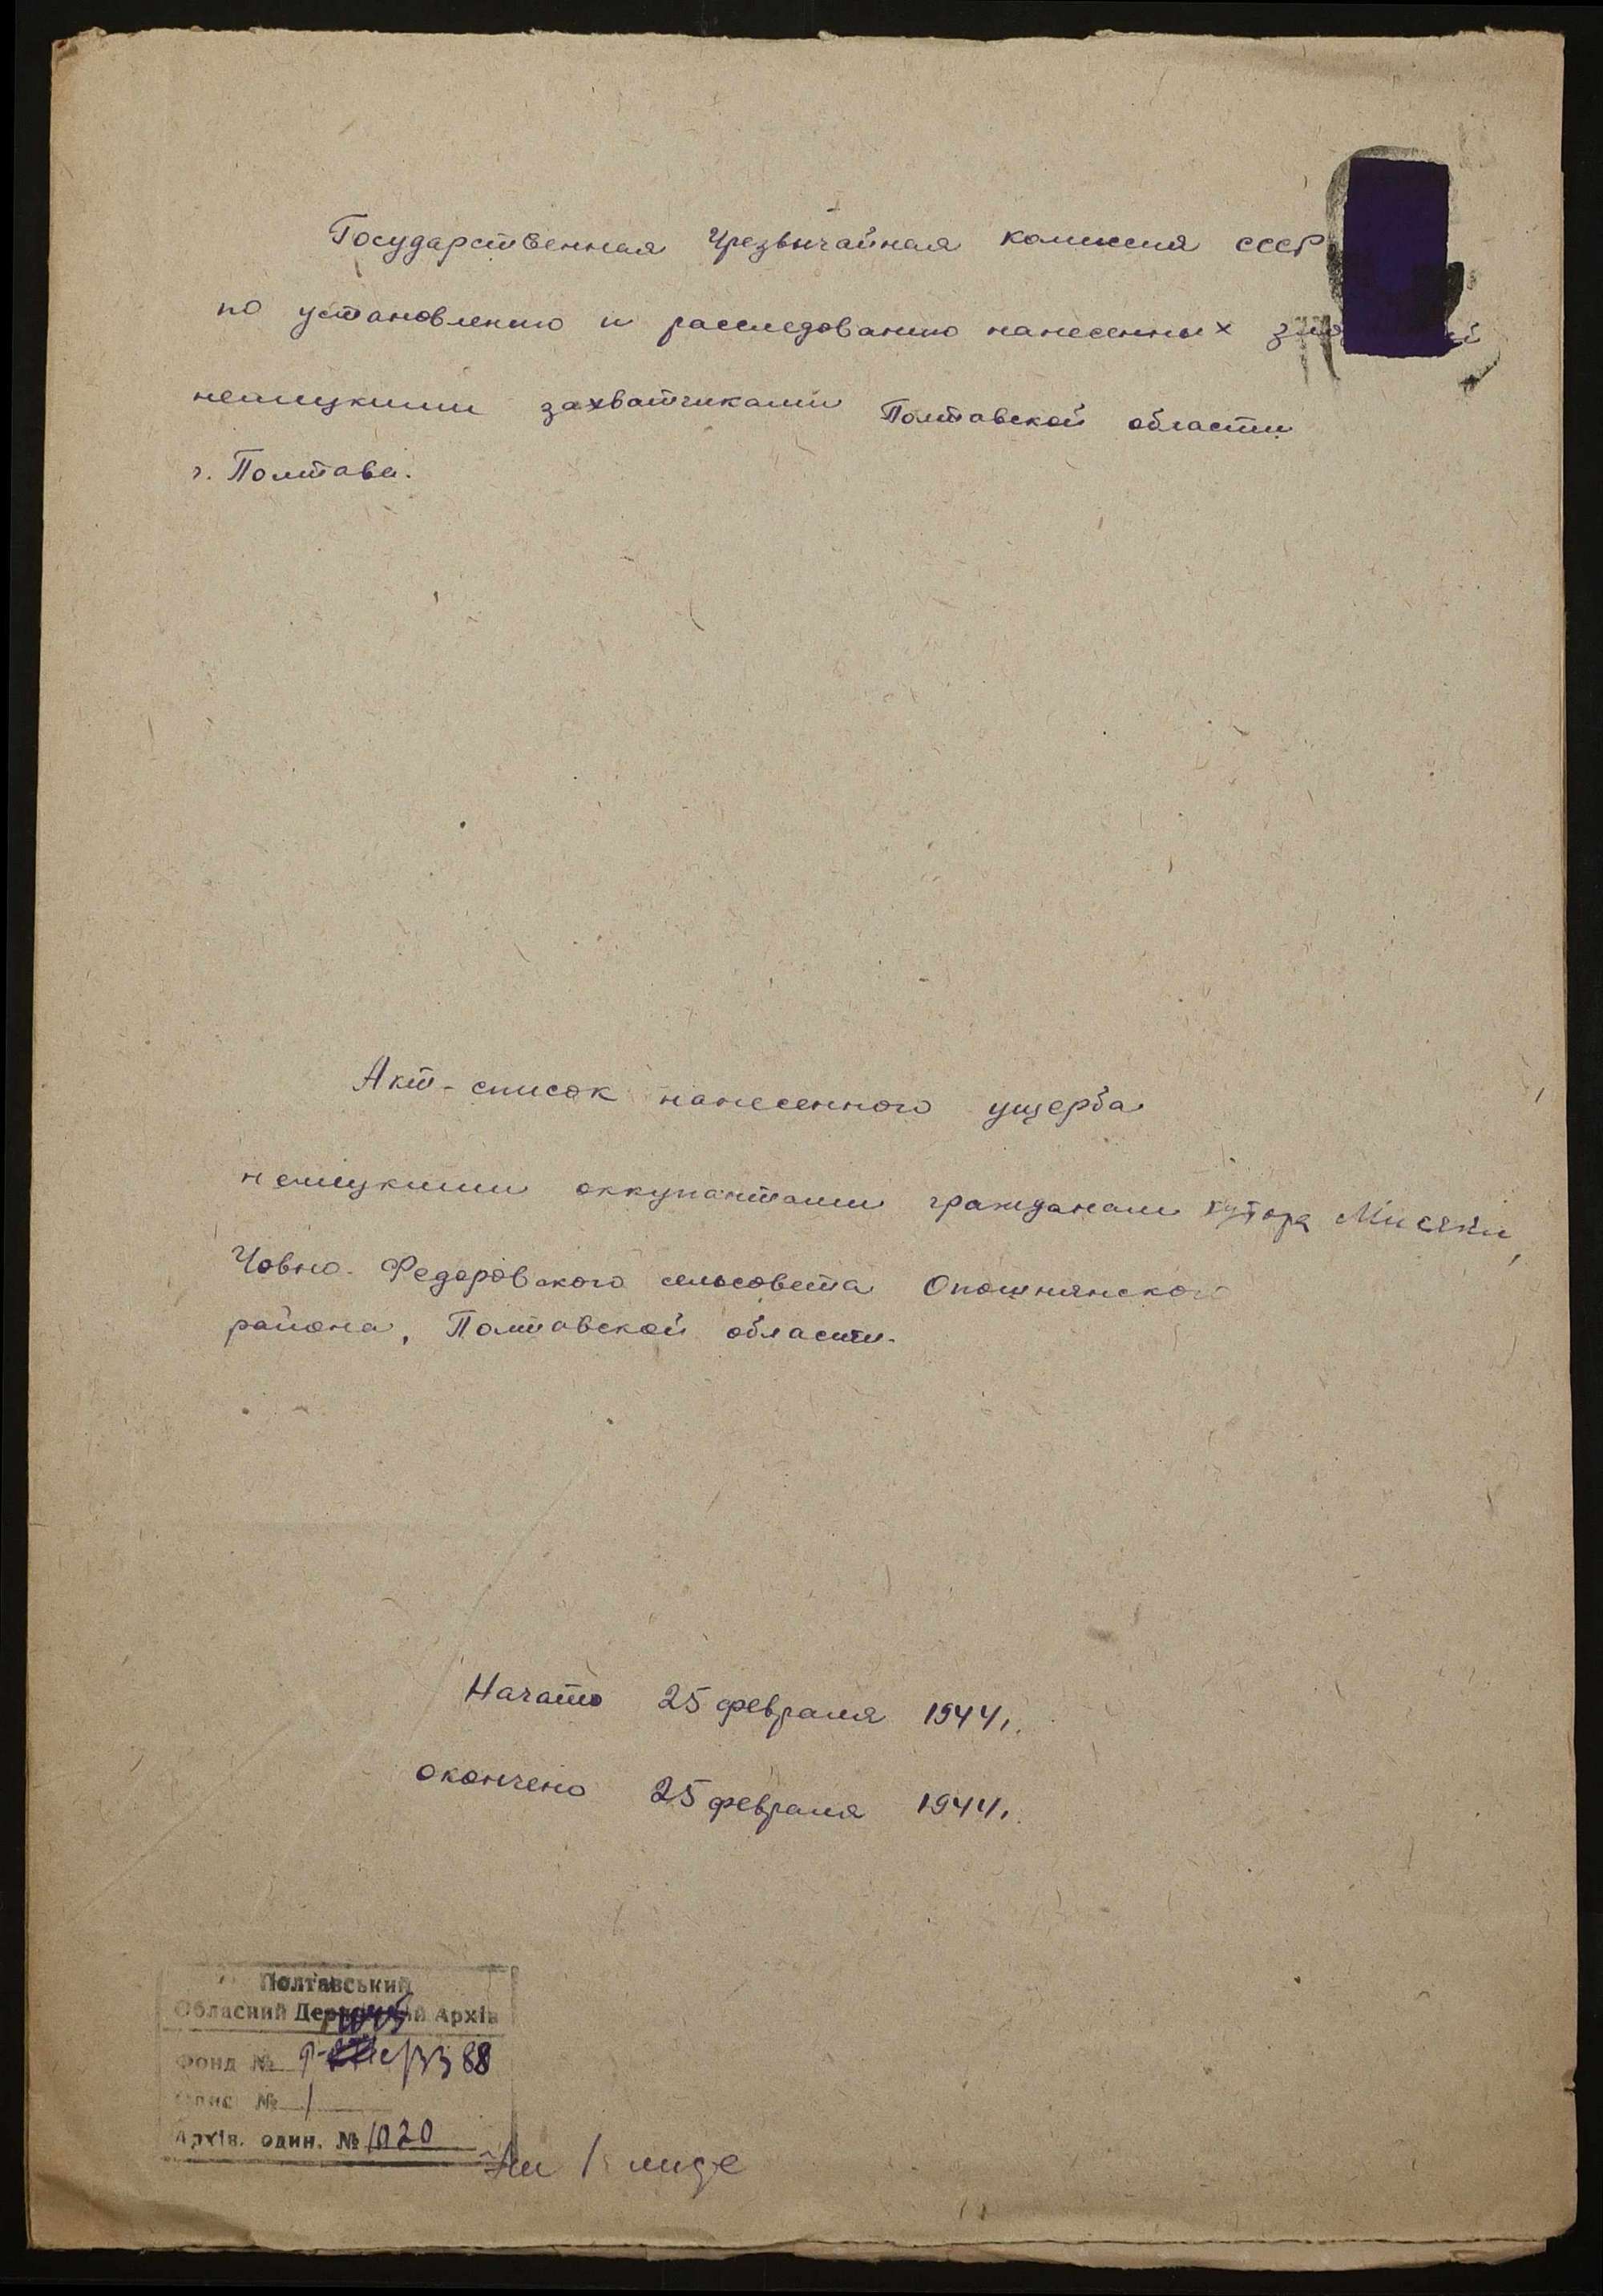 Государственная Чрезвычайная комиссия СССР
по установлению и расследованию нанесенных
немецкими захватчиками Полтавской области
г. Полтава.
Акт-список нанесенного ущерба
немецкими оккупантами гражданам хутора Мисяки,
Човно-Федоровского сельсовета Опошнянского
района, Полтавской области.
Начато 25 февраля 1944г.
окончено 25 февраля 1944г.
Полтавський
Обласний Державний Архів
Фонд № Р- 3388
Опис № 1
Архів. один. № 1020